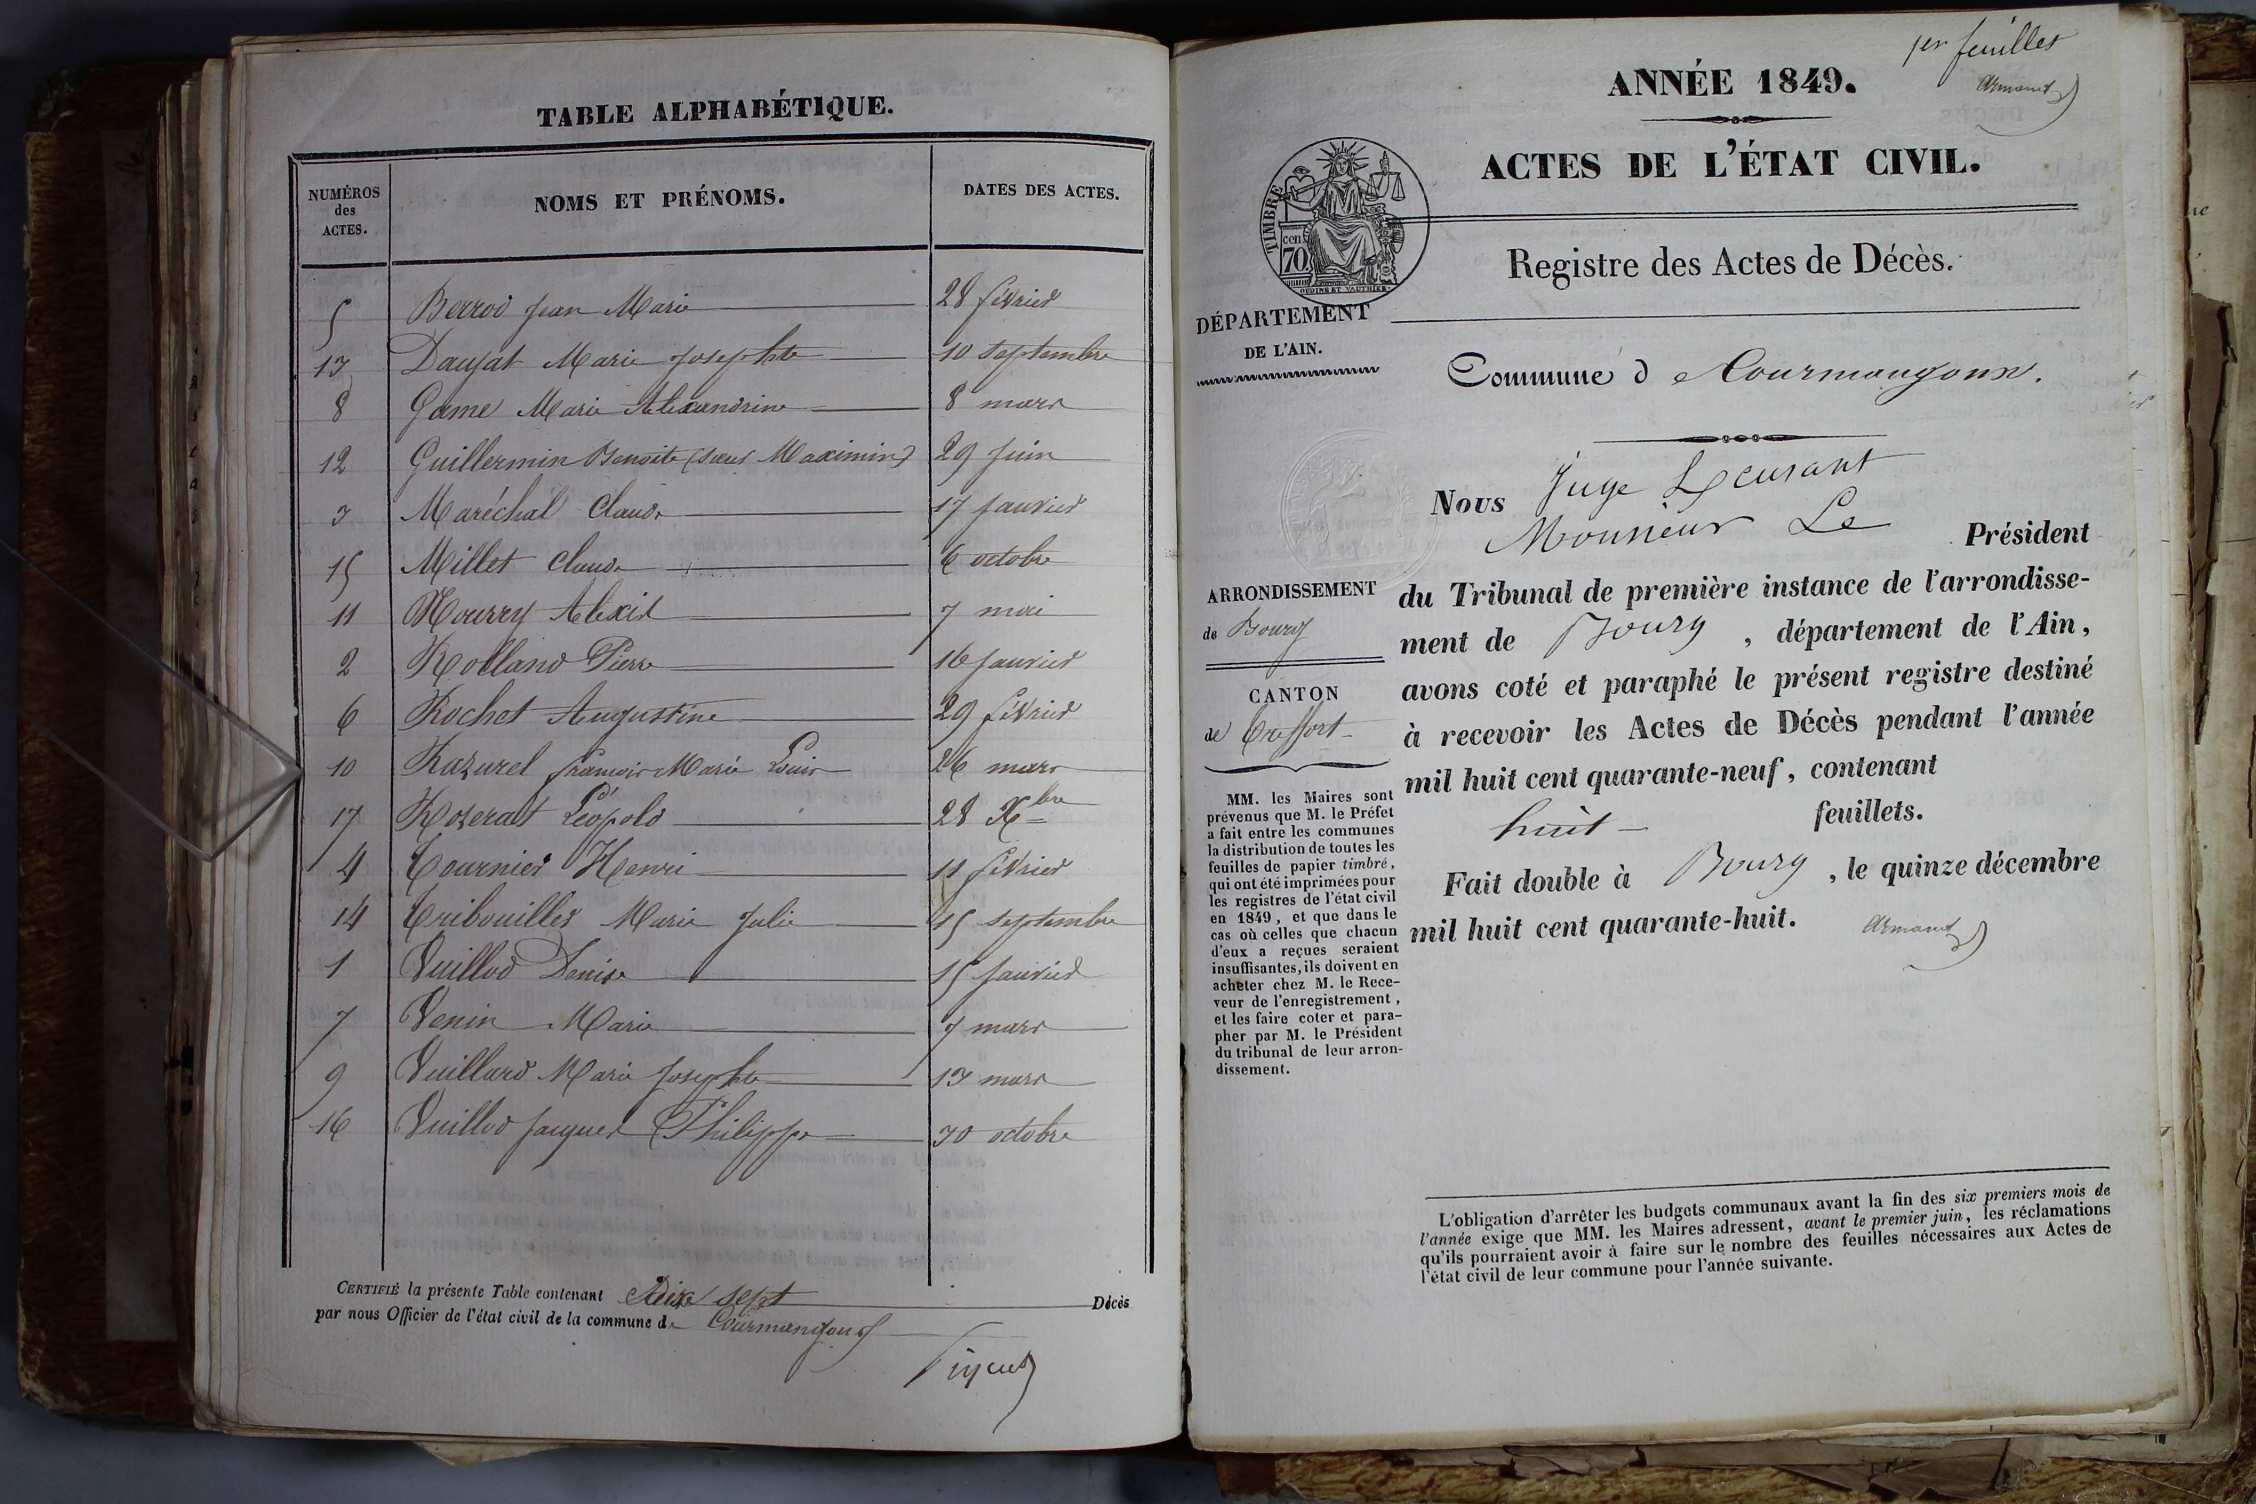 TABLE ALPHABÉTIQUE.
NUMÉROS des ACTES. NOMS ET PRÉNOMS. DATES DES ACTES.
5 Berrod Jean Marie 28 février
13 Daujat Marie Josephte 10 septembre
8 Game Marie Alexandrine 8 mars
12 Guillermin Benoite (sœur Maximin) 29 juin
3 Maréchal Claude 17 janvier
15 Millet Claude 6 octobre
11 Nourry Alexis 7 mai
2 Rolland Pierre 16 janvier
6 Rochet Augustine 29 février
10 Razurel françois Marie Louis 26 mars
17 Rozerat Léopold 28 Xbre
4 Tournier Henri 11 février
14 Tribouillet Marie Julie 15 septembre
1 Vuillod Denise 15 janvier
7 Venin Marie 7 mars
9 Vuillard Marie Josephte 13 mars
16 Vuillod Jacques Philippe 30 octobre
CERTIFIÉ la présente Table contenant Dix sept Décès
par nous Officier de l'état civil de la commune de Courmangoux
1er feuillet
Armand
ANNÉE 1849.
ACTES DE L'ÉTAT CIVIL.
TIMBRE
cen
70
Registre des Actes de Décès.
DÉPARTEMENT
DE L'AIN.
Commune d Courmangoux.
Nous Juge
Monsieur Le Président
du Tribunal de première instance de l'arrondisse-
ment de Bourg, département de l'Ain,
avons coté et paraphé le présent registre destiné
à recevoir les Actes de Décès pendant l'année
mil huit cent quarante-neuf, contenant
huit feuillets.
Fait double à Bourg, le quinze décembre
mil huit cent quarante-huit.
Armand
ARRONDISSEMENT
de Bourg
CANTON
de Treffort
MM. les Maires sont
prévenus que M. le Préfet
a fait entre les communes
la distribution de toutes les
feuilles de papier timbré,
qui ont été imprimées pour
les registres de l'état civil
en 1849, et que dans le
cas où celles que chacun
d'eux a reçues seraient
insuffisantes, ils doivent en
acheter chez M. le Rece-
veur de l'enregistrement,
et les faire coter et para-
pher par M. le Président
du tribunal de leur arron-
dissement.
L'obligation d'arrêter les budgets communaux avant la fin des six premiers mois de
l'année exige que MM. les Maires adressent, avant le premier juin, les réclamations
qu'ils pourraient avoir à faire sur le nombre des feuilles nécessaires aux Actes de
l'état civil de leur commune pour l'année suivante.